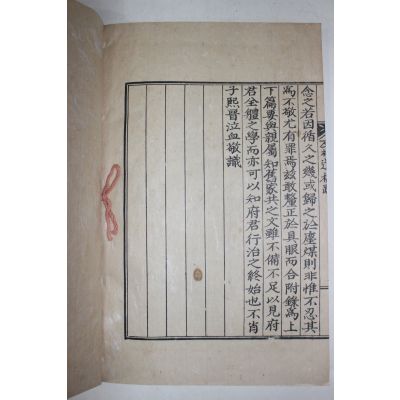 念之若因循久之幾或歸之於塵煤則非惟不忍其
爲不敬尤有罪焉玆敢釐正於具眼而合附錄爲上
下篇要與親屬知舊家共之文雖不備不足以見府
君全體之學而亦可以知府君行治之終始也不肖
子熙晋泣血敬識